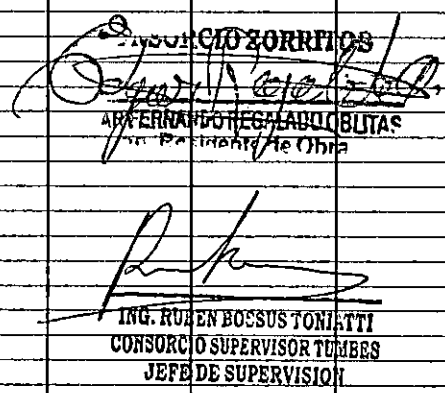 CONSORCIO ZORRITOS
FERNANDO REGALADO OBLITAS
Residente de Obra
ING. RUBEN BOSSUS TONIATTI
CONSORCIO SUPERVISOR TUMBES
JEFE DE SUPERVISION